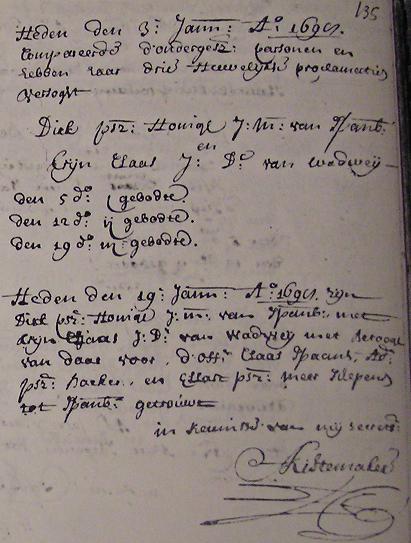 135
Heden den 3: Jann: Ao: 169
Compareerde d'ondergesz: personen en
hebben haar drie Huwelijkx proclamatien
versogt
Dirk psz: Honigh J: M: van Spanb:
en
Trijn Claas J: Do: van Wadweij
den 5 do: j gebodte.
den 12 do: ij gebodte.
den 19 do: iij gebodte.
Heden den 19: Jann: Ao: 169 zijn
Dirk psz: Honigh J: m: van Spanb: met
Trijn Claas J: D: van Wadweij met
van daar voor d'off: Claas
psz: Backer en psz: meer Schepens
tot Spanb: getrouwt
in kennisse van mij secrets:
Kistemaker